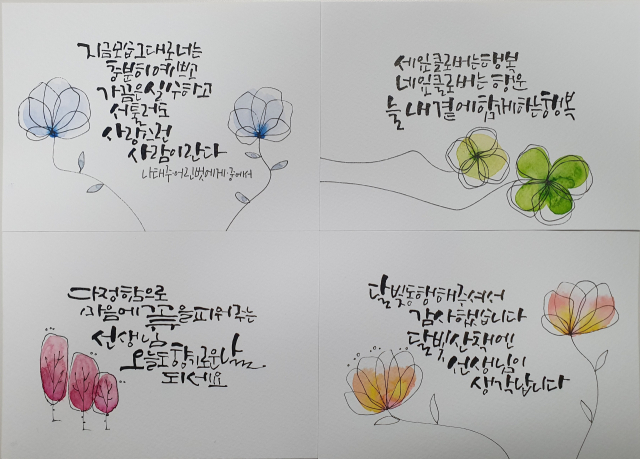 지금모습그대로너는
충분히예쁘고
가끔은실수하고
서툴러도
사랑스런
사람이란다
나태주·어린벗에게·중에서
세잎클로버는행복
네잎클로버는행운
늘내곁에함께하는행복
다정함으로
마음에꽃을피워주는
선생님
오늘도향기로운날
되세요
달빛동행해주셔서
감사했습니다
달빛산책엔
선생님이
생각납니다